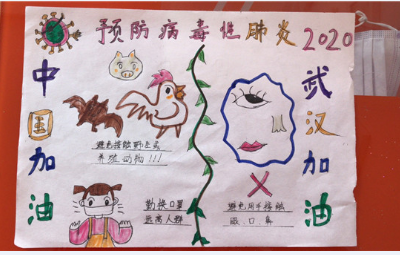 预防病毒性肺炎2020
中国加油
武汉加油
避免接触野生或
养殖动物!!!
勤换口罩
远离人群
避免用手接触
眼、口、鼻